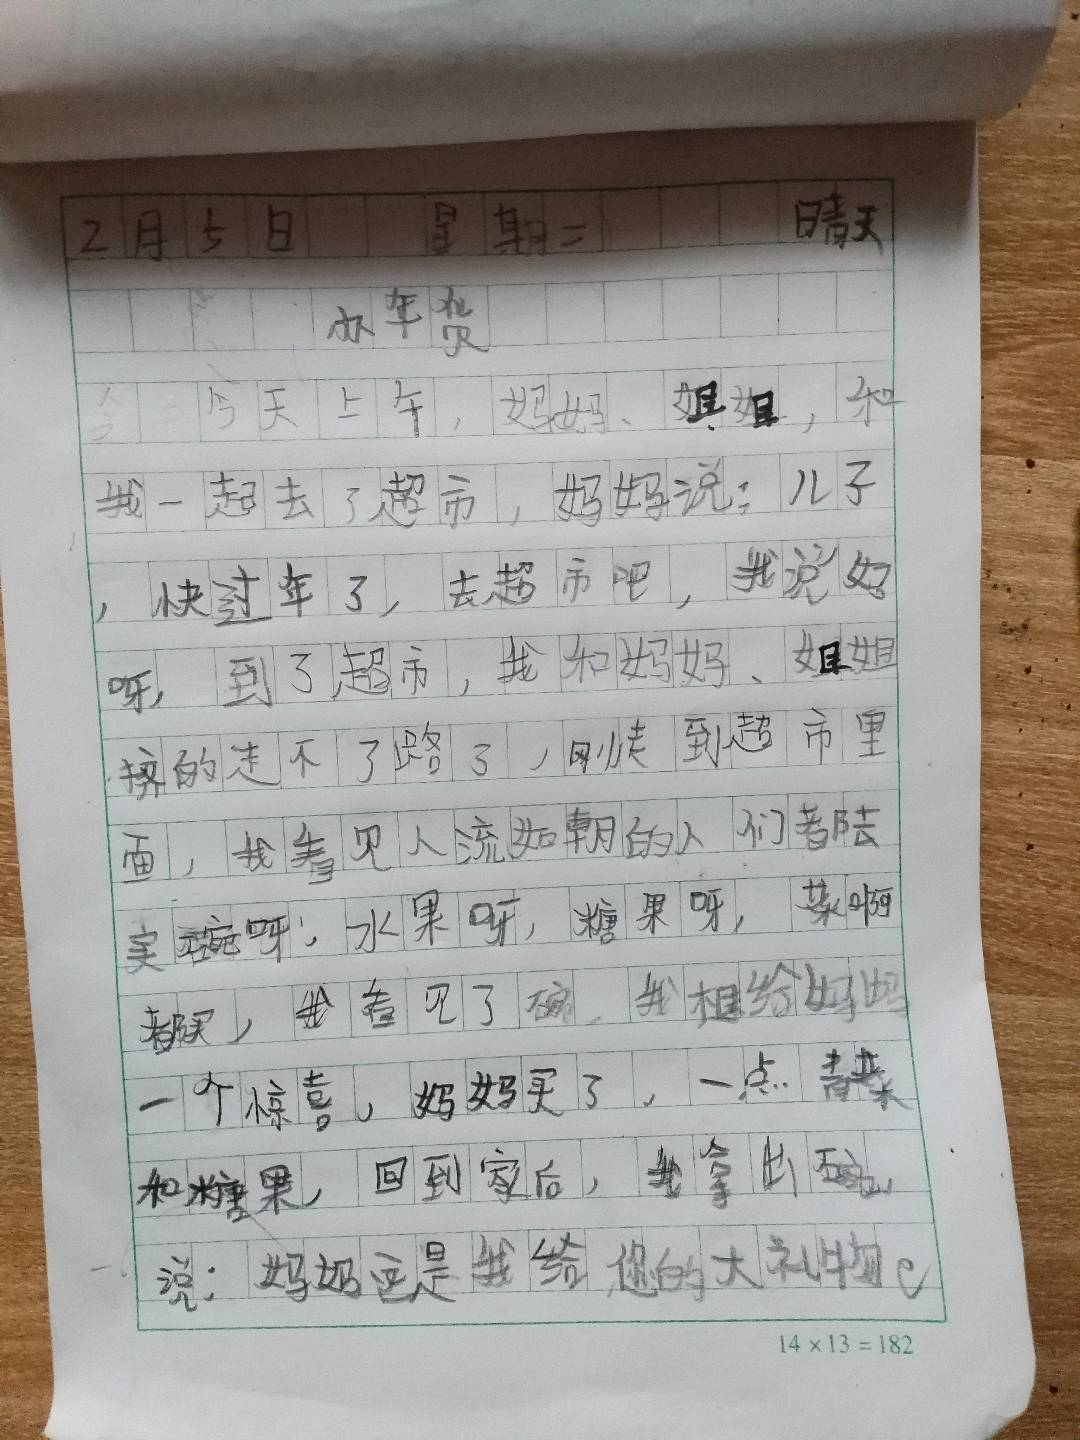 2月5日 星期二 晴天
办年货
今天上午，妈妈、姐姐，和
我一起去了超市，妈妈说：儿子
，快过年了，去超市吧，我说好
呀，到了超市，我和妈妈、姐姐
挤的走不了路了，刚走到超市里
面，我看见人流如朝的人们都去
买碗呀，水果呀，糖果呀，菜啊
都买，我看见了碗，我想给妈妈
一个惊喜，妈妈买了，一点青菜
和糖果，回到家后，我拿出碗，
说：妈妈这是我给你的大礼物。
14×13=182